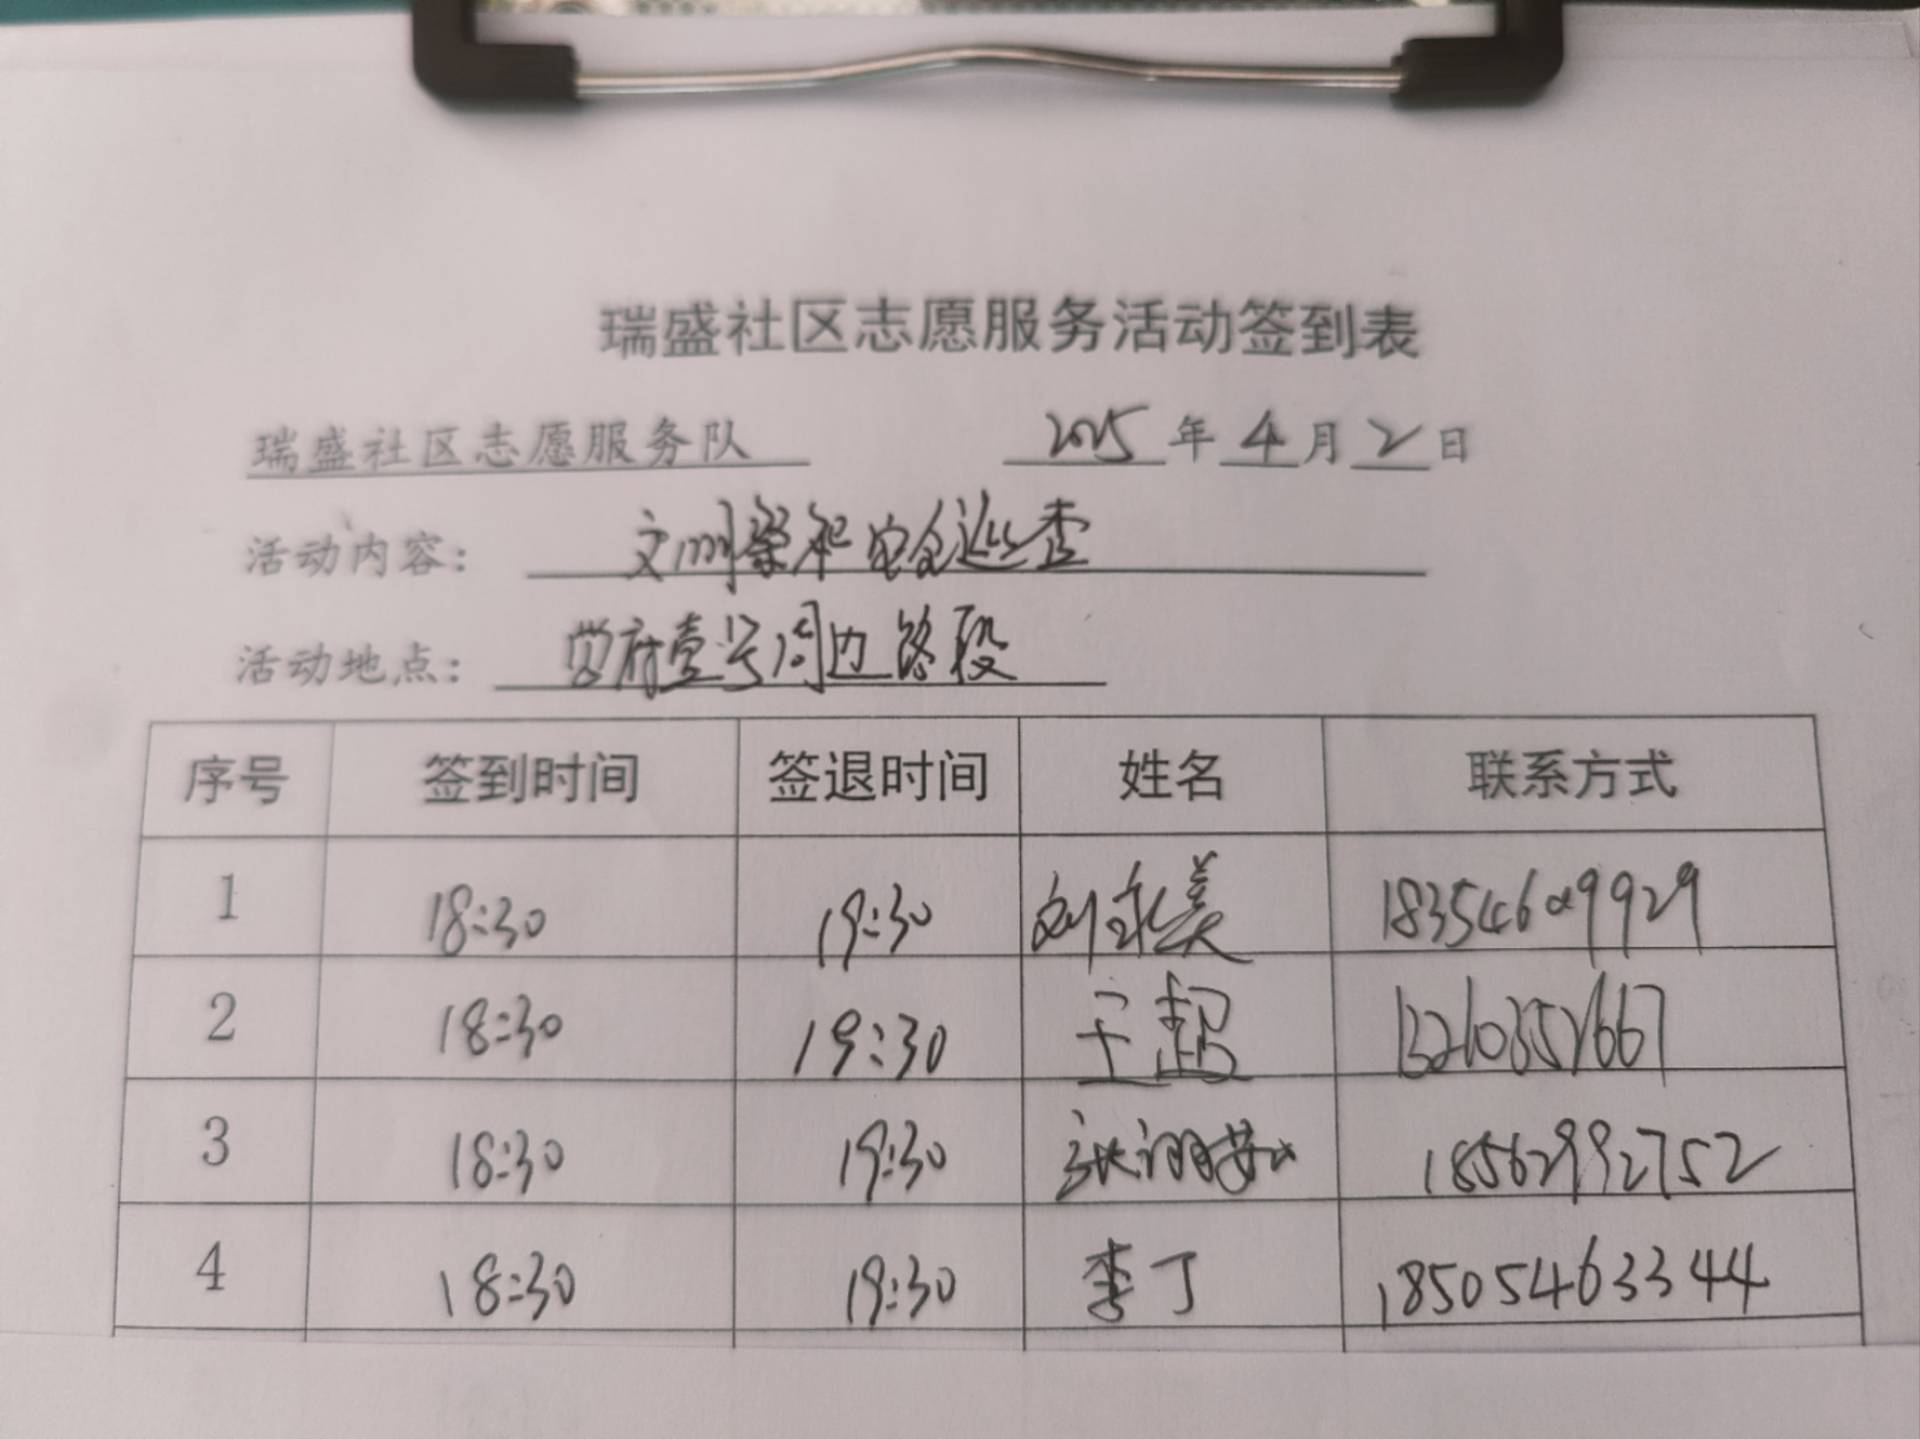 瑞盛社区志愿服务活动签到表
瑞盛社区志愿服务队 2025年4月2日
活动内容： 文明祭祀安全巡查
活动地点： 学府壹号周边路段
序号 签到时间 签退时间 姓名 联系方式
1 18:30 19:30 刘永美
2 18:30 19:30 王超
3 18:30 19:30 18562992752
4 18:30 19:30 李丁 18505463344